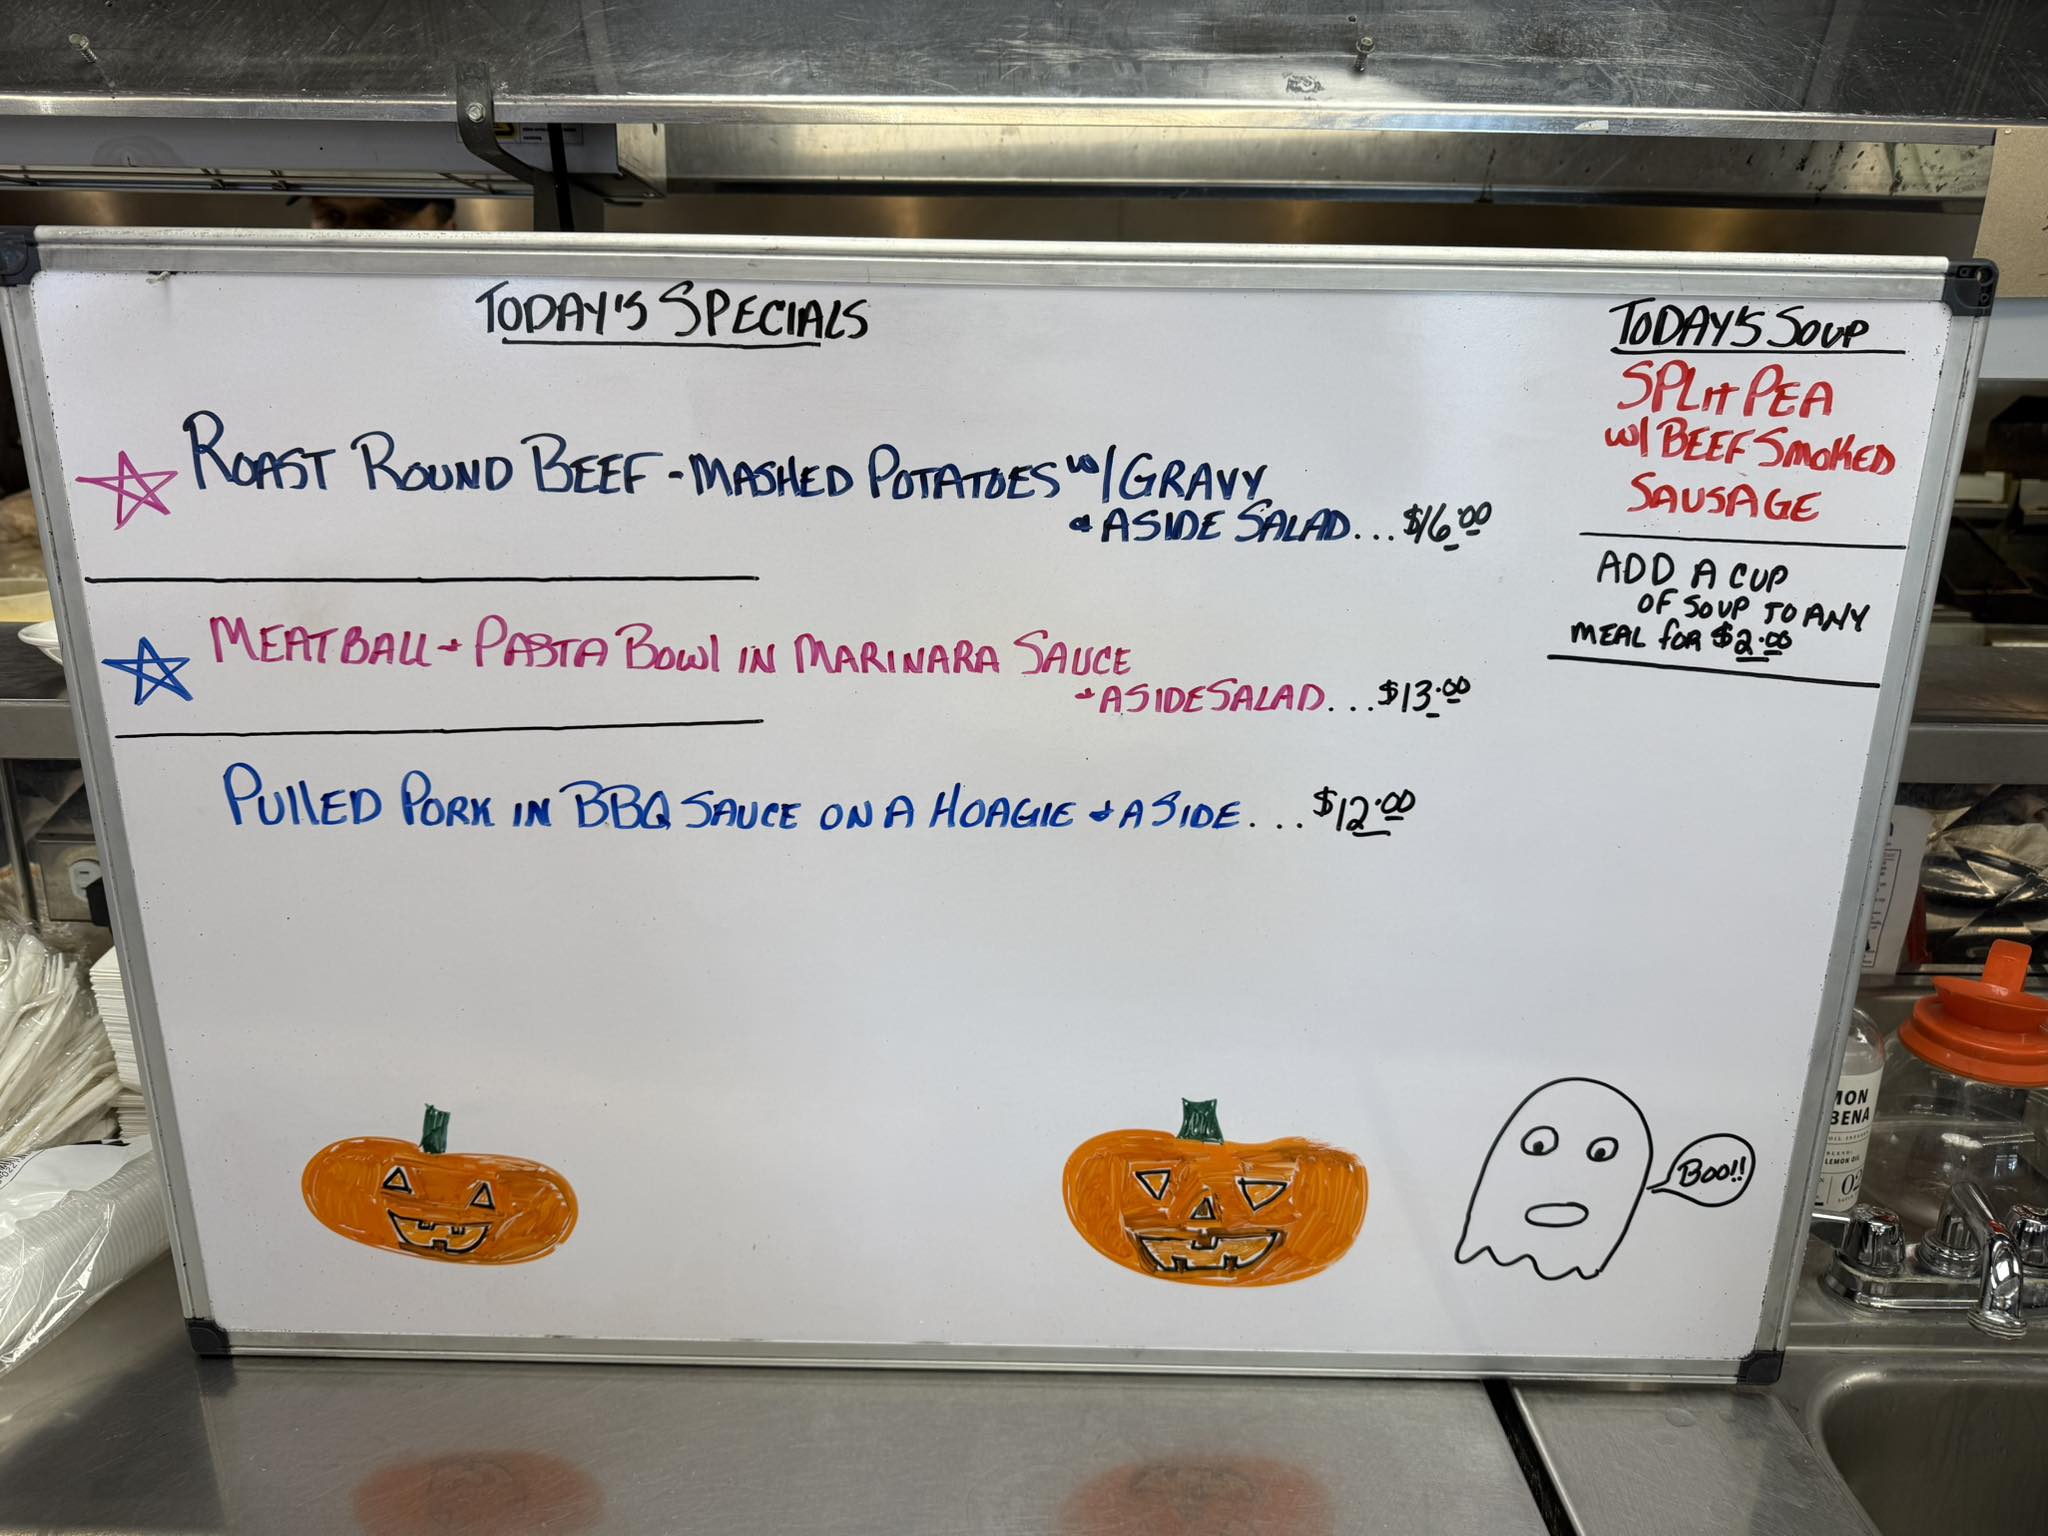 TODAY'S SPECIALS
ROAST ROUND BEEF - MASHED POTATOES w/ GRAVY
& A SIDE SALAD... $16.00
MEATBALL & PASTA BOWL IN MARINARA SAUCE
& A SIDE SALAD... $13.00
PULLED PORK IN BBQ SAUCE ON A HOAGIE & A SIDE... $12.00
TODAY'S SOUP
SPLIT PEA
w/ BEEF SMOKED
SAUSAGE
ADD A CUP
OF SOUP TO ANY
MEAL FOR $2.00
BOO!!
MON
BENA
LEMON OIL